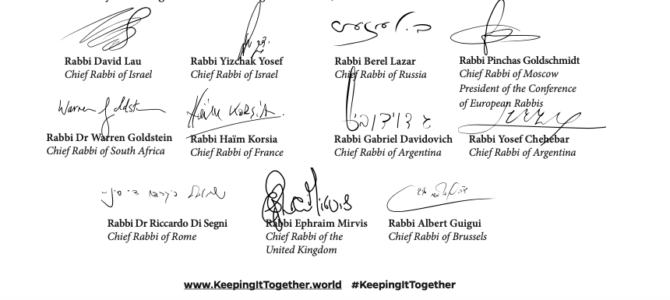 Rabbi David Lau
Chief Rabbi of Israel
Rabbi Yizchak Yosef
Chief Rabbi of Israel
Rabbi Berel Lazar
Chief Rabbi of Russia
Rabbi Pinchas Goldschmidt
Chief Rabbi of Moscow
President of the Conference
of European Rabbis
Warren Goldstein
Rabbi Dr Warren Goldstein
Chief Rabbi of South Africa
Haïm KORSIA.
Rabbi Haïm Korsia
Chief Rabbi of France
Rabbi Gabriel Davidovich
Chief Rabbi of Argentina
Rabbi Yosef Chehebar
Chief Rabbi of Argentina
Rabbi Dr Riccardo Di Segni
Chief Rabbi of Rome
Rabbi Ephraim Mirvis
Chief Rabbi of the
United Kingdom
Rabbi Albert Guigui
Chief Rabbi of Brussels
www.KeepingItTogether.world #KeepingItTogether